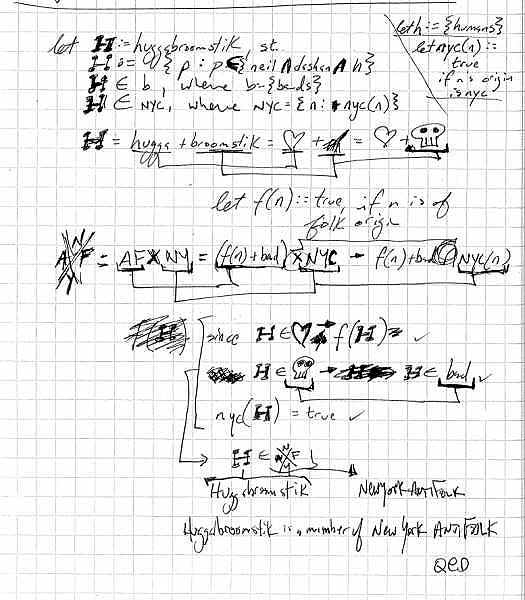 let h := {humans}
let nyc(n) :=
true
if n's origin
is nyc
let H := huggabroomstik, s.t.
H := U{p : p ∈ {neil ∧ dashan ∧ h}
H ∈ b, where b = {bands}
H ∈ NYC, where NYC = {n : nyc(n)}
H = hugga + broomstik = ♡ + = ♡ + ☠
let f(n) := true, if n is of
folk origin
AF NY = AF × NY = (f(n) + bad) × NYC → f(n) + bad NYC(n)
since H ∈ ♡ → f(H) ✓
H ∈ ☠ → H ∈ bad ✓
nyc(H) = true ✓
→ H ∈ NYAF
Huggabroomstik New York Antifolk
Huggabroomstik is a member of New York AntiFolk
QED